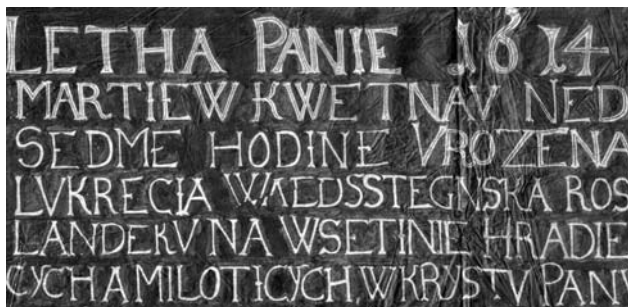 LETHA PANIE 1614
MARTIEW KWETNAV NED
SEDME HODINE VROZENA
LVKRECIA WALDSSTEGNSKA ROS
LANDEKV NA WSETINIE HRADIE
CYCH A MILOTICYCH, W KRYSTV PANV